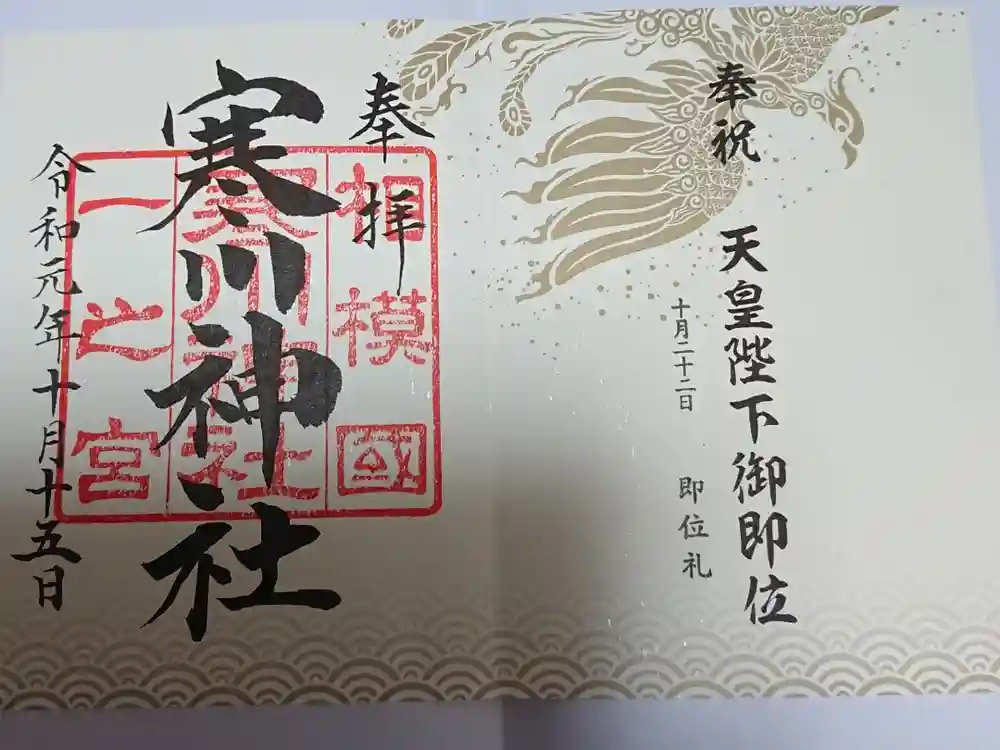 奉祝
天皇陛下御即位
十月二十二日 即位礼
奉拝
寒川神社
令和元年十月十五日
相模國
寒川神社
一之宮